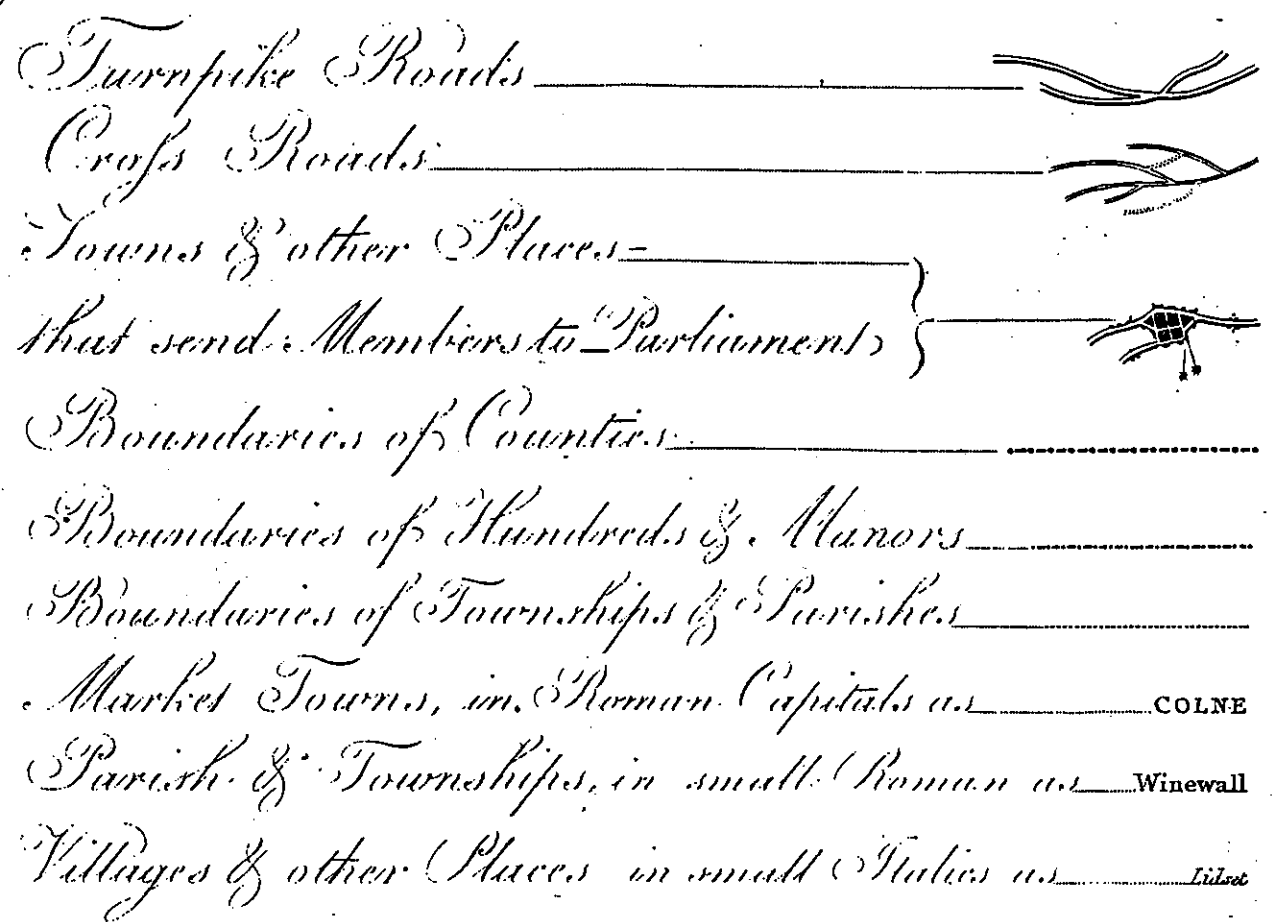 Turnpike Roads
Croſs Roads
Towns & other Places
that send Members to Parliament
Boundaries of Counties
Boundaries of Hundreds & Manors
Boundaries of Townships & Parishes
Market Towns, in Roman Capitals as COLNE
Parish & Townships, in small Roman as Winewall
Villages & other Places in small Italics as Lidset